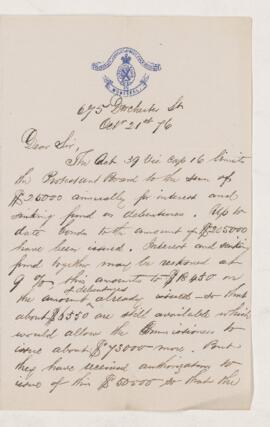 MONTREAL
675 Dorchester St
Octr 21st 76
Dear Sir,
The Act 39 Vic Cap 16 limits
the Protestant Board to the sum of
$25000 annually for interest and
sinking fund on debentures. Up to
date bonds to the amount of $205000
have been issued. Interest and sinking
fund together may be reckoned at
9 %, this amounts to $18450 on
the amount of debentures already issued so that
about $6550 are still available which
would allow the Commissioners to
issue about $75000 more. But
they have received authority to
issue of this $50000 so that the